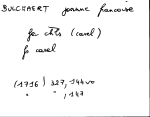 BULCKAERT jeanne francoise
fa chls (carel)
fs carel
(1716) 327, 144vo
" ", 147